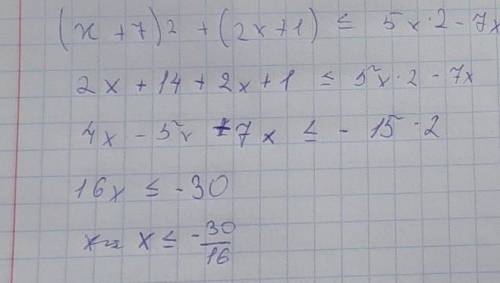 (x + 7)2 + (2x + 1) ≤ 5x · 2 - 7x
2x + 14 + 2x + 1 ≤ 5²x · 2 - 7x
4x - 5²x + 7x ≤ - 15 · 2
16x ≤ -30
x ≤ -30/16